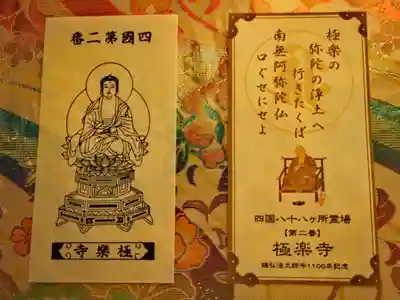 四國第二番
寺樂極
極楽の
弥陀の浄土へ
行きたくば
南無阿弥陀仏
口ぐせにせよ
四国八十八ヶ所霊場
【第二番】
極楽寺
諡弘法大師号1100年記念